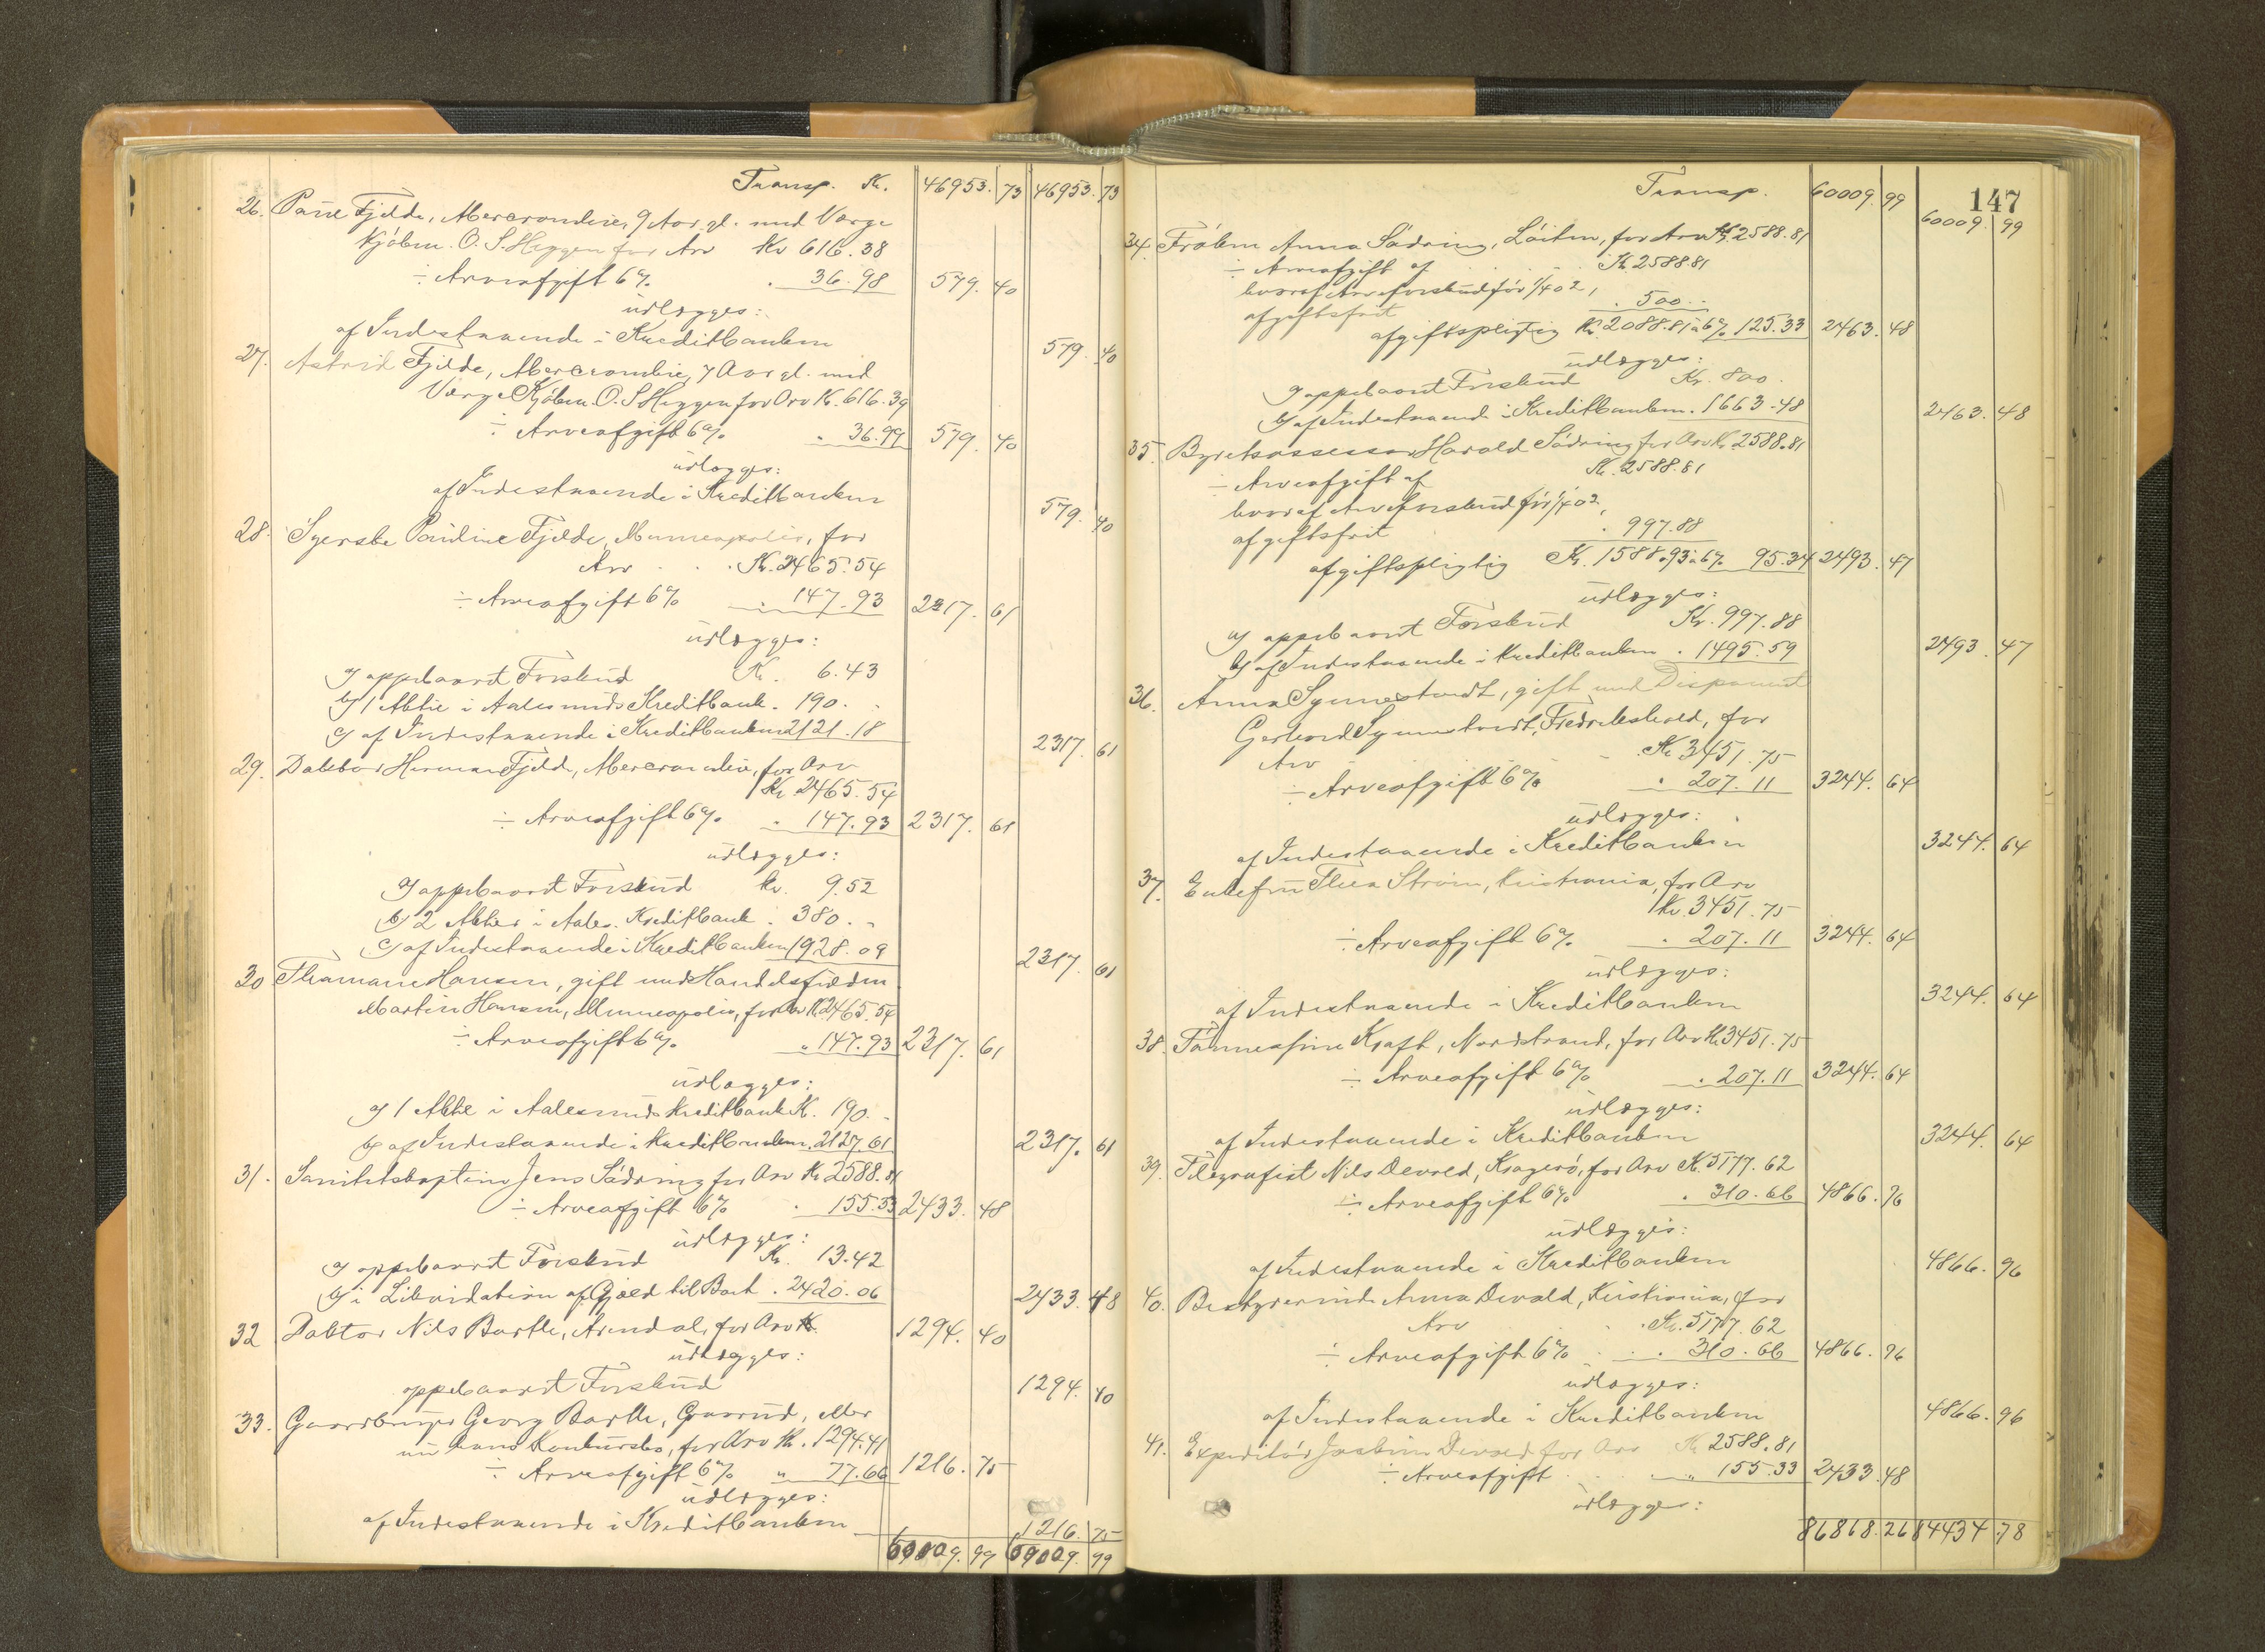 Transp. Kr. 46953. 73 46953. 73
26. Paul Fjelde, Mercrombie, 9 Aar gl. med Værge
Kjøbm. O. S. Heggen for Arv Kr 616.38
÷ Arveafgift 6% . 36.98 579. 40
udlægges:
af Indestaaende i Kreditbanken 579. 40
27. Astrid Fjelde, Abercrombie, 7 Aar gl. med
Værge Kjøbm. O. S Heggen for Arv K. 616.39
÷ Arveafgift 6% . 36.99 579. 40
udlægges:
af Indestaaende i Kreditbanken 579. 40
28. Syerske Pauline Fjelde, Minneapolis, for
Arv . . . Kr. 2465.54
÷ Arveafgift 6% . 147.93 2317. 61
udlægges:
a) oppebaaret Forskud Kr. 6.43
b) 1 Aktie i Aalesunds Kreditbank . 190. -
c) af Indestaaende i Kreditbanken 2121.18 2317. 61
29. Doktor Herman Fjelde, Abercrombie, for Arv
Kr 2465.54
÷ Arveafgift 6% . 147.93 2317. 61
udlægges:
a) oppebaaret Forskud kr. 9.52
b) 2 Aktier i Aales. Kreditbank . 380. -
c) af Indestaaende i Kreditbanken 1928.09 2317. 61
30 Thomane Hansen, gift med Handelsfuldm.
Martin Hansen, Minneapolis, for Arv K 2465.54
÷ Arveafgift 6% " 147.93 2317. 61
udlægges:
a) 1 Aktie i Aalesunds Kreditbank K. 190. -
b) af Indestaaende i Kreditbanken . 2127.61 2317. 61
31. Sanitetskaptein Jens Sådring for Arv Kr 2588.81
÷ Arveafgift 6% . 155.33 2433. 48
udlægges:
a) oppebaaret Forskud Kr. 13.42
b) i Likvidation af Gjæld til Boet . 2420.06 2433. 48
32 Doktor Nils Barth, Arendal, for Arv K. 1294. 40
udlægges:
oppebaaret Forskud 1294. 40
33. Gaardbruger Georg Barth, Gaarud, eller
nu hans Konkursbo, for Arv Kr. 1294.41
÷ Arveafgift 6% " 77.66 1216. 75
udlægges:
af Indestaaende i Kreditbanken 1216. 75
60009. 99 60009. 99
147
Transp. 60009. 99 60009. 99
34. Frøken Anna Sådring, Løiten, for Arv Kr. 2588.81
÷ Arveafgift af . . . Kr. 2588.81
hvoraf Arveforskud før 1/4 02,
afgiftsfrit . 500. -
afgiftspligtig Kr. 2088.81 à 6% 125.33 2463. 48
udlægges:
a) oppebaaret Forskud Kr. 800.
b) af Indestaaende i Kreditbanken . 1663.48 2463. 48
35. Byretsassessor Harald Sådring for Arv Kr. 2588.81
÷ Arveafgift af Kr. 2588.81
hvoraf Arveforskud før 1/4 02,
afgiftsfrit . 997.88
afgiftspligtig Kr. 1588.93 à 6% 95.34 2493. 47
udlægges:
a) oppebaaret Forskud Kr. 997.88
b) af Indestaaende i Kreditbanken . 1495.59 2493. 47
36. Anna Synnestvedt, gift med Disponent
Gerhard Synnestvedt, Fredrikshald, for
Arv . Kr 3451.75
÷ Arveafgift 6% . 207.11 3244. 64
udlægges:
af Indestaaende i Kreditbanken 3244. 64
37. Enkefru Thea Strøm, Kristiania, for Arv
Kr. 3451.75
÷ Arveafgift 6% . 207.11 3244. 64
udlægges:
af Indestaaende i Kreditbanken 3244. 64
38. Tønnesine Kraft, Nordstrand, for Arv Kr. 3451.75
÷ Arveafgift 6% . 207.11 3244. 64
udlægges:
af Indestaaende i Kreditbanken 3244. 64
39. Telegrafist Nils Devold, Kragerø, for Arv K. 5177.62
÷ Arveafgift 6% . 310.66 4866. 96
udlægges:
af Indestaaende i Kreditbanken 4866. 96
40. Bestyrerinde Anna Devold, Kristiania, for
Arv . . Kr. 5177.62
÷ Arveafgift 6% . . . 310.66 4866. 96
udlægges:
af Indestaaende i Kreditbanken 4866. 96
41. Expeditør Joakim Devold for Arv Kr 2588.81
÷ Arveafgift . . " 155.33 2433. 48
udlægges:
86868. 26 84434. 78